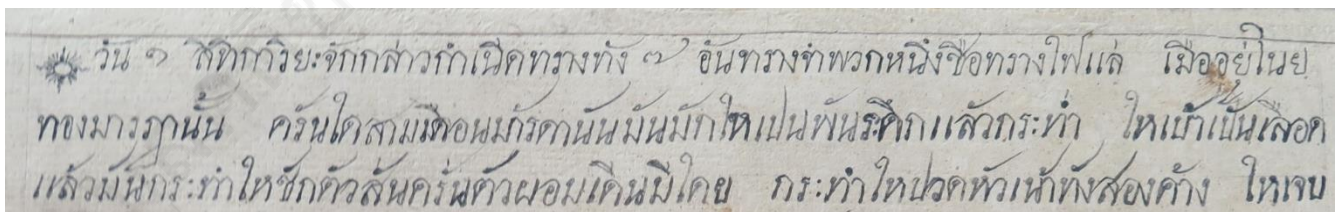 วัน ๑ สิทิการิยะจักกล่าวกำเนิดทรางทัง ๗ อันทรางจำพวกหนึ่งชื่อทรางไฟแล เมืออยู่ไนย
ทองมารฎานั้น ครันใดสามเดือนมารดานันมันมักไหเปนพันระดึกแล้วกระทำ ไหเบ้าเป็นเลือด
แล้วมันกระทำไหชักตัวสันครั่นตัวผอมเดินมิไดย กระทำไหปวดหัวเน่าทังสองค้าง ไหเจบ